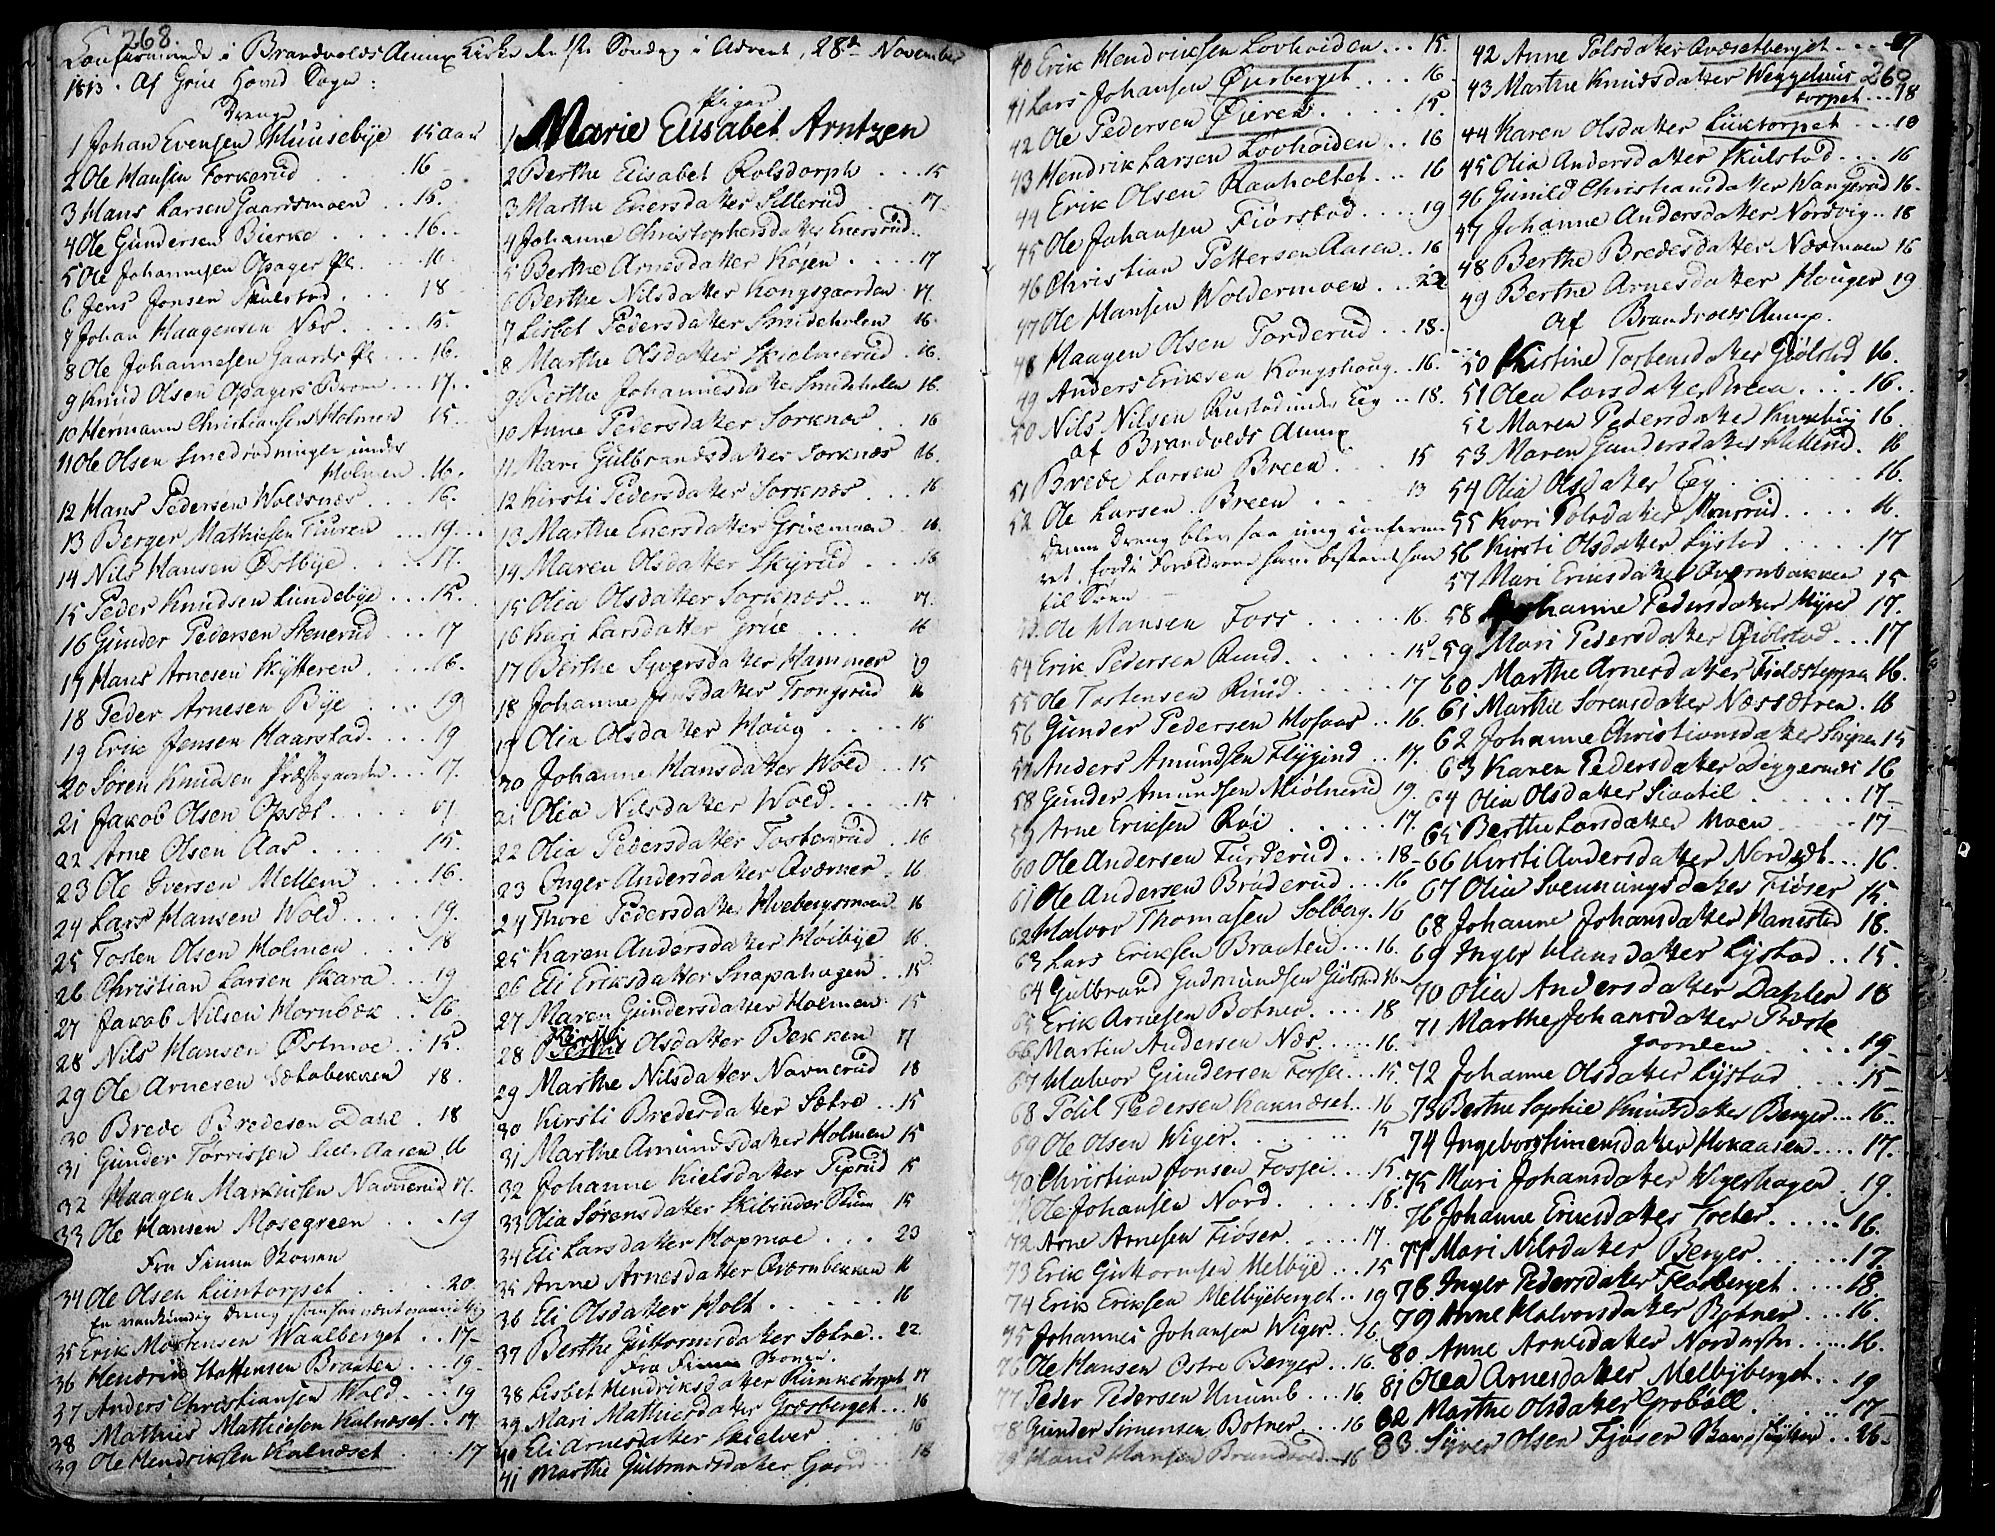 268.
Confirmerede i Brandvolds Annex Kirke den 1ste Søndag i Advent, 28de November
1813. Af Grue Hoved Sogn:
Drenge
1 Johan Evensen Huusebye 15 aar
2 Ole Hansen Torkerud 16
3 Hans Larsen Gaardsmoen 18.
4 Ole Gundersen Bierke 16.
5 Ole Johannesen Opager Pl. 16
6 Jens Jonsen Skulstad 18
7 Johan Haagensen Næs 15.
8 Ole Johannesen Gaards Pl 16.
9 Knud Olsen Opagers Broen 17.
10 Hermann Christiansen Holmen 15
11 Ole Olsen Smedrødningen under
Holmen 16.
12 Hans Pedersen Woldsnæs 16.
13 Berger Mathiesen Tiuren 19.
14 Nils Hansen Østbye 17.
15 Peder Knudsen Lundebye 15.
16 Gunder Pedersen Stenerud 17
17 Hans Arnesen Skytteren 16.
18 Peder Arnesen Bye 19
19 Erik Jensen Haarstad 19
20 Søren Knudsen Præstegaarden 17.
21 Jakob Olsen Opsæt 17
22 Arne Olsen Aas 15.
23 Ole Iversen Mellem 16.
24 Lars Hansen Wold 19.
25 Tosten Olsen Holmen 18
26 Christian Larsen Skara 19
27 Jakob Nilsen Hornbæk 16
28 Nils Hansen Østmoe 15.
29 Ole Arnesen Sætabekken 18.
30 Brede Bredesen Dahl 18
31 Gunder Torrissen Lille Aasen 16
32 Haagen Martinsen Navnerud 17.
33 Ole Hansen Mosegreen 19
Fra Finne Skoven
34 Ole Olsen Liintorpet 20.
35 Erik Mortensen Waalberget 17
36 Hendrik Staffensen Braaten 19
37 Anders Christiansen Wold 19
38 Mathies Mathiesen Kalneset 17.
39 Ole Hendriksen Kalneset 17
Piger
1 Marie Elisabet Arntzen
2 Berthe Elisabet Rolsdorph 15
3 Marthe Enersdatter Sillerud 17
4 Johanne Christophersdatter Enersrud
5 Berthe Arnesdatter Køjen 17
6 Berthe Nilsdatter Kongsgaarden 17.
7 Lisbet Pedersdatter Smideholen 16.
8 Marthe Olsdatter Skiolmerud 16.
9 Berthe Johannesdatter Smideholen 16.
10 Anne Pedersdatter Sorknæs 16
11 Mari Gulbrandsdatter Sorknæs 16.
12 Kirsti Pedersdatter Sorknæs 16
13 Marthe Enersdatter Gruemoen 16.
14 Maren Olsdatter Skyrud 16
15 Olia Olsdatter Sorknæs 17.
16 Kari Larsdatter Grue 16
17 Berthe Syversdatter Hammer 19
18 Johanne Jensdatter Trongsrud 16
19 Olia Olsdatter Houg 16
20 Johanne Hansdatter Wold 15
21 Olia Nilsdatter Wold 15
22 Olia Pedersdatter Tostensrud 16
23 Inger Andersdatter Qværner 16
24 Thore Pedersdatter Hvebergsmoen 16
25 Karen Andersdatter Høibye 16.
26 Eli Eriksdatter Snapahagen 15
27 Maren Gundersdatter Holmen 15
28 Kirsti Olsdatter Bekken 17
29 Marthe Nilsdatter Navnerud 18
30 Kirsti Bredesdatter Sætre 15
31 Marthe Amundsdatter Holmen 15
32 Johanne Kielsdatter Piprud 15
33 Olia Sørensdatter Skibinder 15
34 Eli Larsdatter Hopmoe 23
35 Anne Arnesdatter Qværnbekken 16
36 Eli Olsdatter Holt 16
37 Berthe Guttormsdatter Sætre 22
Fra Finne Skoven.
38 Lisbet Hendriksdatter Runketorpet 17
39 Mari Mathiesdatter Græsberget 16
40 Eli Arnesdatter Skielver 16
41 Marthe Gulbrandsdatter Gaard 16
40 Erik Hendriksen Lovhoiden 15.
41 Lars Johansen Øjerberget 16.
42 Ole Pedersen Øieren 15
43 Hendrik Larsen Lovhoiden 16
44 Erik Olsen Raaholtet 16
45 Ole Johansen Fiørstad 19
46 Christian Pettersen Aasen 16
47 Ole Hansen Woldermoen 22
48 Haagen Olsen Torderud 18.
49 Anders Eriksen Kongshoug 16.
50 Nils Nilsen Rustad under Eeg 18.
af Brandvolds Annex
51 Brede Larsen Breen 15
52 Ole Larsen Breen 13
Denne Dreng blev saa ung confirme
ret, fordi Forældrene have bestemt ham
til Søen
53 Ole Hansen Foss 16.
54 Erik Pedersen Ruud 15
55 Ole Tostensen Ruud 17
56 Gunder Pedersen Hofaas 16.
57 Anders Amundsen Flygind 17.
58 Gunder Amundsen Miølnerud 19.
59 Arne Eriksen Røi 17.
60 Ole Andersen Furderud 18
61 Ole Andersen Bruderud 16
62 Halvor Thomasen Solberg 16
63 Lars Eriksen Braaten 16.
64 Gulbrand Gudmundsen Giolstad 16
65 Erik Arnesen Botner 18
66 Martin Andersen Næs 16.
67 Halvor Gundersen Fossei 15.
68 Poul Pedersen Kaknæset 16
69 Ole Olsen Wiger 15
70 Christian Jonsen Fossei 15.
71 Ole Johansen Nord 18.
72 Arne Arnesen Fiøser 17.
73 Erik Guttormsen Melbye 15
74 Erik Eriksen Melbyeberget 19
75 Johannes Johansen Wiger 16
76 Ole Hansen Østre Berger 16.
77 Peder Pedersen Unumb 16
78 Gunder Simensen Botner 16
79 Hans Hansen Brandvold 16
269
42 Anne Polsdatter Qvæsetberget
43 Marthe Knudsdatter Weggehus
torpet 18
44 Karen Olsdatter Luktorpet 18
45 Olia Andersdatter Skulstad 16
46 Gunild Christiansdatter Wangerud 16.
47 Johanne Andersdatter Nordvig 18
48 Berthe Bredesdatter Næsmoen 16
49 Berthe Arnesdatter Houger 19
Af Brandvolds Annex.
50 Kirstine Tostensdatter Giølstad 16.
51 Olea Larsdatter Breen 16.
52 Maren Pedersdatter 16
53 Maren Gundersdatter Mellerud 16
54 Olia Olsdatter Eeg 16.
55 Kari Polsdatter Monsrud 16.
56 Kirsti Olsdatter Lystad 17
57 Mari Eriksdatter Qværnbakken 15
58 Johanne Pedersdatter Myrer 17.
59 Mari Pedersdatter Giolstad 17
60 Marthe Arnesdatter Fieldsteppen 16.
61 Marthe Sørensdatter Næssætren 16
62 Johanne Christiansdatter 15
63 Karen Pedersdatter Deggernæs 16
64 Olia Olsdatter Siaatil 17
65 Berthe Larsdatter Moen 17
66 Kirsti Andersdatter Nordset 16.
67 Olia Svenningsdatter Fiøser 15.
68 Johanne Johansdatter Hanestad 18.
69 Inger Hansdatter Lystad 15.
70 Olia Andersdatter Dahler 18
71 Marthe Johansdatter Præste
gaarden 19
72 Johanne Olsdatter Lystad 15
73 Berthe Sophie Knudsdatter Berger 16
74 Ingeborg Simensdatter Hokaasen 17.
75 Mari Johansdatter Wigershagen 19.
76 Johanne Eriksdatter Troter 16.
77 Mari Nilsdatter Berger 17.
78 Inger Pedersdatter Flosberget 18.
79 Anne Halvorsdatter Botner 16.
80 Anne Arnesdatter Nordre 16.
81 Olea Arnesdatter Melbyberget 19
82 Marthe Olsdatter Grobøll 17
83. Syver Olsen Fjøser 26